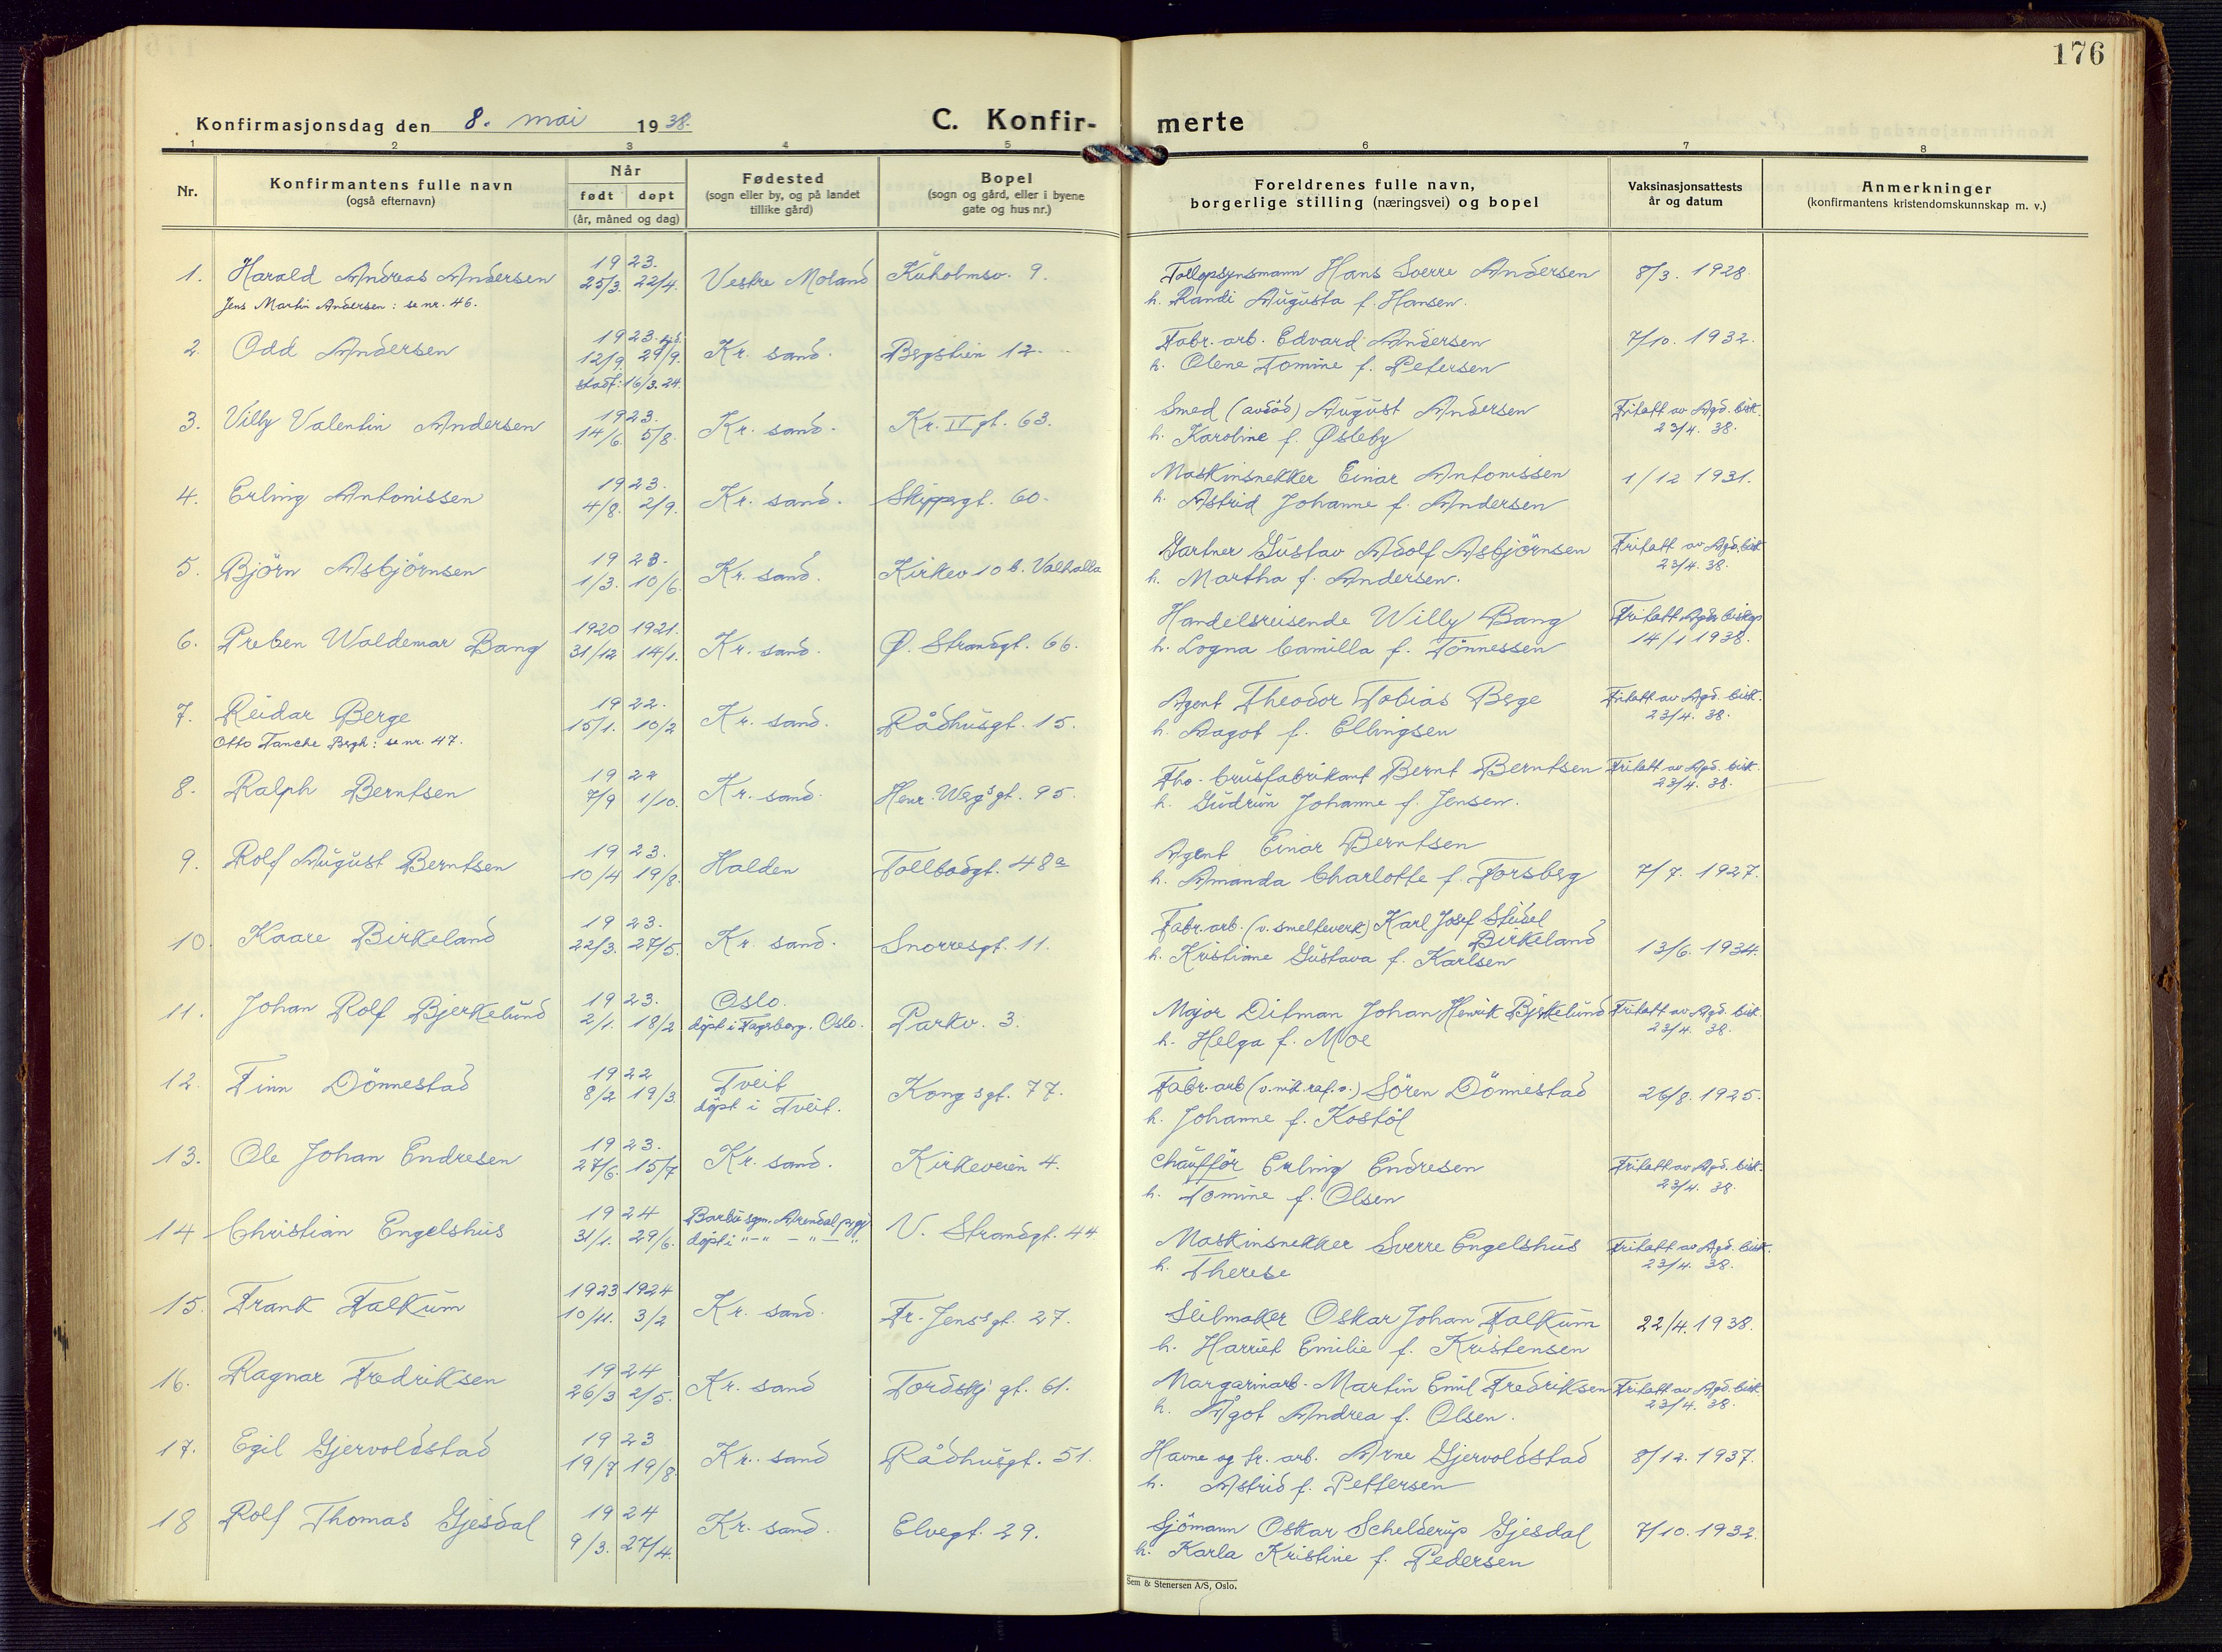 176
Konfirmasjonsdag den 8. mai 1938.
C. Konfir- merte
1 2 3 4 5 6 7 8
Nr.
Konfirmantens fulle navn
(også efternavn)
Når
født døpt
(år, måned og dag)
Fødested
(sogn eller by, og på landet
tillike gård)
Bopel
(sogn og gård, eller i byene
gate og hus nr.)
Foreldrenes fulle navn,
borgerlige stilling (næringsvei) og bopel
Vaksinasjonsattests
år og datum
Anmerkninger
(konfirmantens kristendomskunnskap m. v.)
1. Harald Andreas Andersen 1923. 25/3. 22/4. Vestre Moland Kuholmsv. 9. Tollopsynsmann Hans Sverre Andersen 8/3. 1928.
Jens Martin Andersen: se nr. 46.
h. Randi Augusta f. Hansen.
2. Odd Andersen 1923. 12/9. 29/9. Kr. sand. Bergstien 12. Fabr. arb. Edvard Andersen 7/10. 1932.
stadf: 16/3. 24.
h. Olene Tomine f. Petersen
3. Villy Valentin Andersen 1923. 14/6. 5/8. Kr. sand. Kr. IV gt. 63. Smed (avdöd) August Andersen Fritatt av Agd. bisk.
h. Karoline f. Øsleby 23/4. 38.
4. Erling Antonissen 1923. 4/8. 2/9. Kr. sand. Skippergt. 60. Maskinsnekker Einar Antonissen 1/12 1931.
h. Astrid Johanne f. Andersen
5. Björn Asbjörnsen 1923. 1/3. 10/6. Kr. sand. Kirkev 10 b. Valhalla Gartner Gustav Adolf Asbjörnsen Fritatt av Agd. bisk
h. Martha f. Andersen. 23/4. 38.
6. Preben Waldemar Bang 1920 1921. 31/12 14/1. Kr. sand. Ø. Strandgt. 66. Handelsreisende Willy Bang Fritatt Agder biskop
h. Logna Camilla f. Tönnessen 14/1 1938.
7. Reidar Berge 1922. 15/1. 10/2 Kr. sand. Rådhusgt. 15. Agent Theodor Tobias Berge Fritatt av Agd. bisk.
Otto Tanche Bergh: se nr. 47.
h. Dagot f. Ellingsen 23/4. 38.
8. Ralph Berntsen 1922 7/9 1/10. Kr. sand. Henr. Wergs gt. 95. Fhv. brusfabrikant Bernt Berntsen Fritatt av Agd. bisk.
h. Gudrun Johanne f. Jensen. 23/4. 38.
9. Rolf August Berntsen 1923. 10/4 19/8. Halden Tollbodgt. 48a Agent Einar Berntsen
h. Amanda Charlotte f. Forsberg 7/7. 1927.
10. Kaare Birkeland 1923. 22/3. 27/5. Kr. sand. Snorresgt. 11. Fabr. arb. (v. smelteverk) Karl Josef
Birkeland 13/6. 1934.
h. Kristiane Gustava f. Karlsen
11. Johan Rolf Bjerkelund 1923. 2/1. 18/2 Oslo. Parkv. 3. Major Ditman Johan Henrik Bjerkelund Fritatt av Agd. bisk.
döpt i Fagerborg. Oslo.
h. Helga f. Moe 23/4. 38.
12. Finn Dönnestad 1922 8/2 19/3. Tveit Kongsgt. 77. Fabr. arb (v. nik. raf. v.) Sören Dönnestad 26/8. 1925.
döpt i Tveit.
h. Johanne f. Kostöl
13. Ole Johan Endresen 1923. 27/6. 15/7 Kr. sand. Kirkeveien 4. Chaufför Erling Endresen Fritatt av Agd. bisk.
h. Tomine f. Olsen 23/4. 38.
14 Christian Engelshus 1924 31/1. 29/6. Barbu sgn. Arendal p.gj. V. Strandgt. 44 Maskinsnekker Sverre Engelshus Fritatt av Agd. bisk.
döpt i "-" - " - "
h. Therese 23/4. 38.
15. Frank Falkum 1923 1924 10/11. 3/2 Kr. sand. Fr. Jenss gt. 27. Seilmaker Oskar Johan Falkum 22/4. 1938.
h. Harriet Emilie f. Kristensen
16. Ragnar Fredriksen 1924 26/3 2/5. Kr. sand Tordskj. gt. 61. Margarinarb. Martin Emil Fredriksen Fritatt av Agd. bisk
h. Ågot Andrea f. Olsen. 23/4. 38.
17. Egil Gjervoldstad 1923 19/7 19/8. Kr. sand Rådhusgt. 51. Havne og tr. arb. Arne Gjervoldstad 8/12. 1937.
h. Astrid f. Pettersen
18 Rolf Thomas Gjesdal 1924 9/3. 27/4. Kr. sand. Elvegt. 29. Sjömann Oskar Schelderup Gjesdal 7/10. 1932.
h. Karla Kristine f. Pedersen
Sem & Stenersen A/S, Oslo.